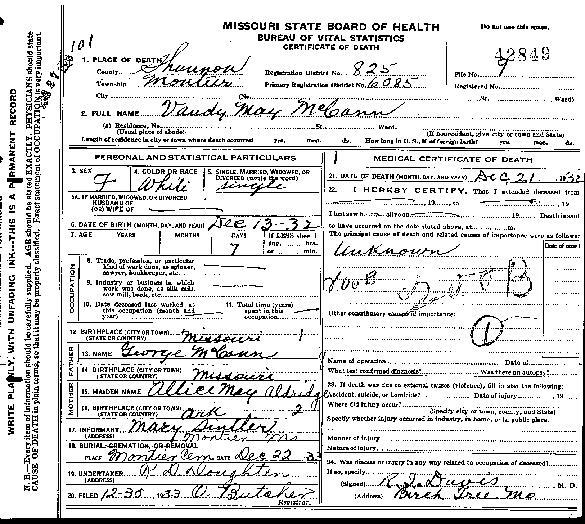 MISSOURI STATE BOARD OF HEALTH
BUREAU OF VITAL STATISTICS
CERTIFICATE OF DEATH
Do not use this space.
101
42849
1. PLACE OF DEATH
County Shannon Registration District No. 825 File No.
Township Montier Primary Registration District No. 6085
City (No. St. Ward)
2. FULL NAME Vandy May McCann
(a) Residence, No. St. Ward.
(Usual place of abode) (If nonresident give city or town and State)
Length of residence in city or town where death occurred yrs. mos. ds. How long in U. S. if of foreign birth? yrs. mos. ds.
PERSONAL AND STATISTICAL PARTICULARS
3. SEX F
4. COLOR OR RACE White
5. SINGLE, MARRIED, WIDOWED, OR DIVORCED (write the word) Single
5A. IF MARRIED, WIDOWED, OR DIVORCED
HUSBAND OF
(OR) WIFE OF
6. DATE OF BIRTH (MONTH, DAY, AND YEAR) Dec 13-32
7. AGE YEARS MONTHS DAYS 7 If LESS than 1 day, hrs. min.
OCCUPATION
8. Trade, profession, or particular kind of work done, as spinner, sawyer, bookkeeper, etc.
9. Industry or business in which work was done, as silk mill, saw mill, bank, etc.
10. Date deceased last worked at this occupation (month and year)
11. Total time (years) spent in this occupation
12. BIRTHPLACE (CITY OR TOWN) (STATE OR COUNTRY) Missouri
FATHER
13. NAME George McCann
14. BIRTHPLACE (CITY OR TOWN) (STATE OR COUNTRY) Missouri
MOTHER
15. MAIDEN NAME Allice May Aldridge
16. BIRTHPLACE (CITY OR TOWN) (STATE OR COUNTRY) Ark
17. INFORMANT Mary
(ADDRESS) Montier Mo
18. BURIAL, CREMATION, OR REMOVAL
PLACE Montier Cem DATE Dec 22
19. UNDERTAKER
(ADDRESS)
20. FILED 12-35 1933 Registrar
MEDICAL CERTIFICATE OF DEATH
21. DATE OF DEATH (MONTH, DAY, AND YEAR) Dec 21 1932
22. I HEREBY CERTIFY, That I attended deceased from
19 to 19
I last saw h alive on 19 Death is said
to have occurred on the date stated above, at m.
The principal cause of death and related causes of importance were as follows:
Date of onset
Unknown
200B
Other contributory causes of importance:
1
Name of operation Date of
What test confirmed diagnosis? Was there an autopsy?
23. If death was due to external causes (violence), fill in also the following:
Accident, suicide, or homicide? Date of injury 19
Where did injury occur?
(Specify city or town, county, and State)
Specify whether injury occurred in industry, in home, or in public place.
Manner of injury
Nature of injury
24. Was disease or injury in any way related to occupation of deceased?
If so, specify
(Signed) R. J. Davis M. D.
(Address) Birch Tree Mo
WRITE PLAINLY, WITH UNFADING INK—THIS IS A PERMANENT RECORD
N. B.—Every item of information should be carefully supplied. AGE should be stated EXACTLY. PHYSICIANS should state
CAUSE OF DEATH in plain terms, so that it may be properly classified. Exact statement of OCCUPATION is very important